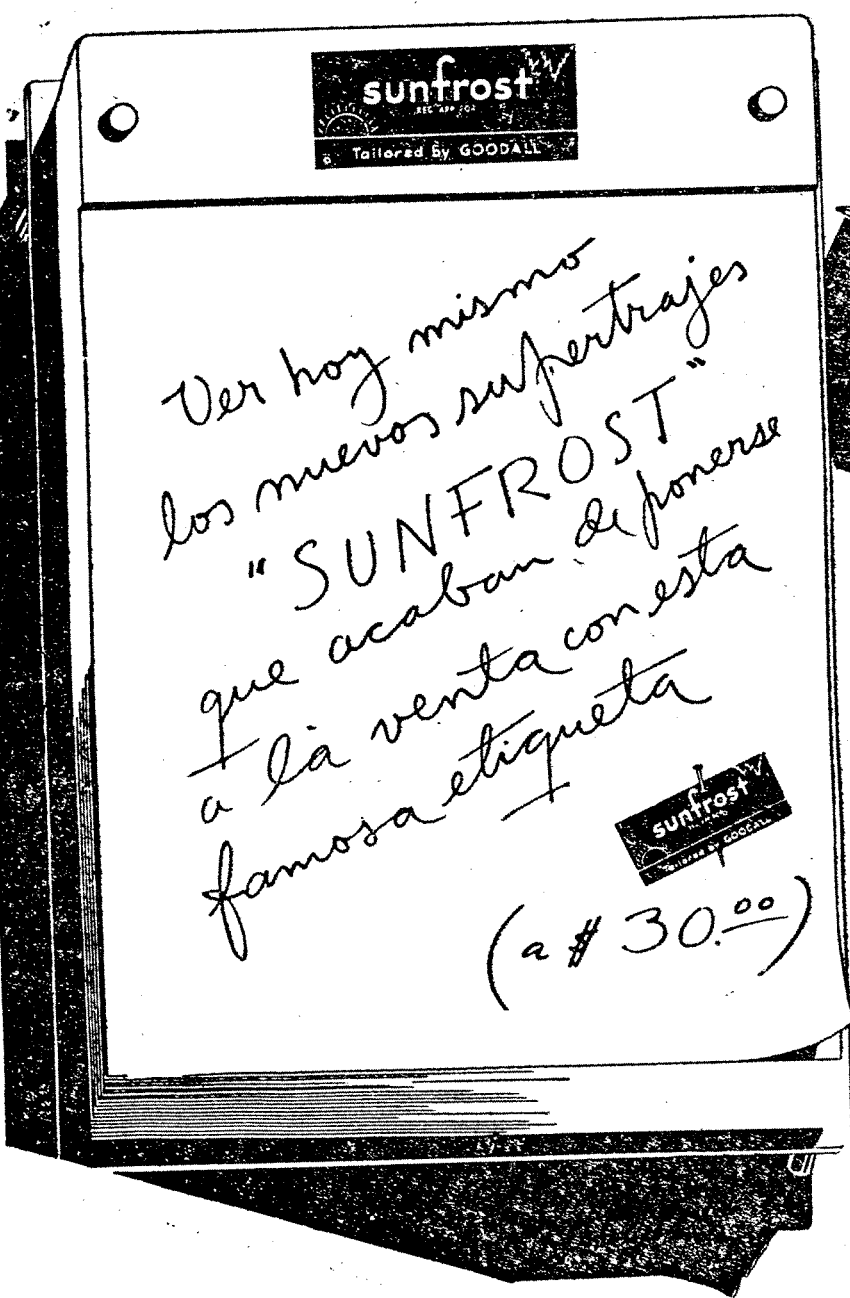 sunfrost
REG APP FOR
Tailored by GOODALL
Ver hoy mismo
los nuevos supertrajes
"SUNFROST"
que acaban de ponerse
a la venta con esta
famosa etiqueta
sunfrost
Tailored by GOODALL
(a $ 30.00)